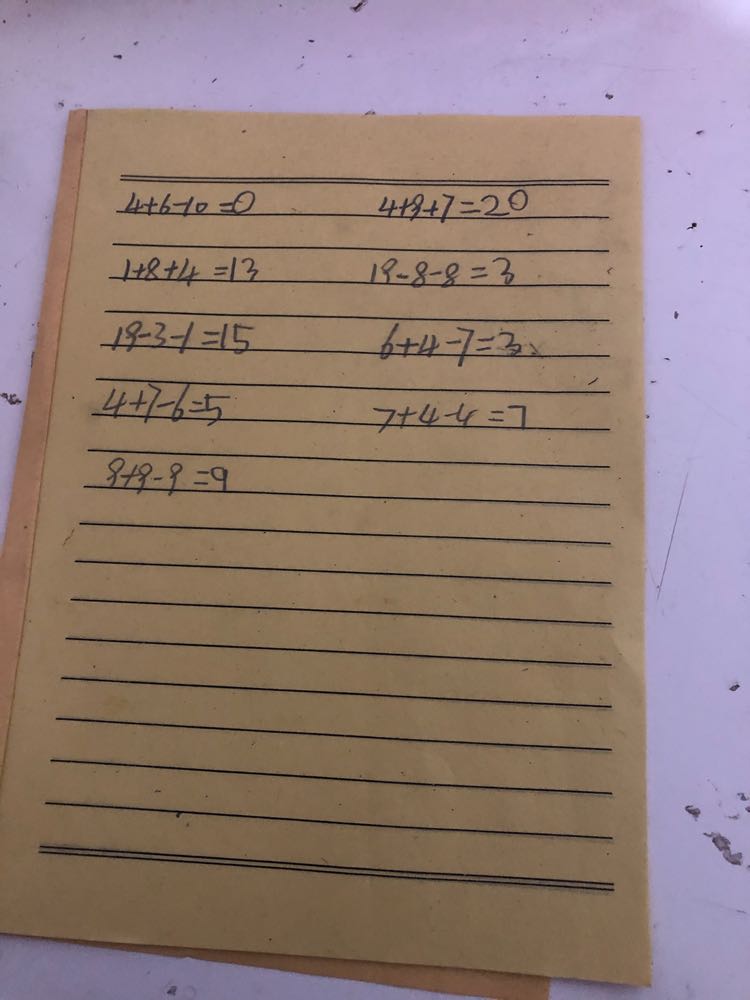 4+6-10=0 4+9+7=20
1+8+4=13 19-8-8=3
19-3-1=15 6+4-7=3
4+7-6=5 7+4-4=7
9+9-9=9